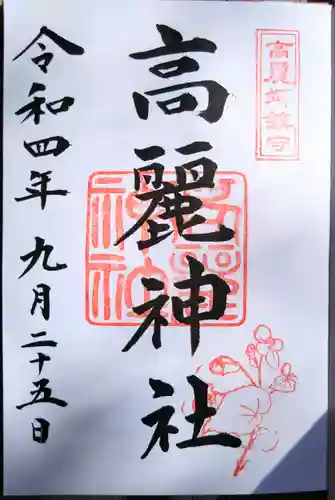 高麗郷鎮守
高麗神社
令和四年九月二十五日